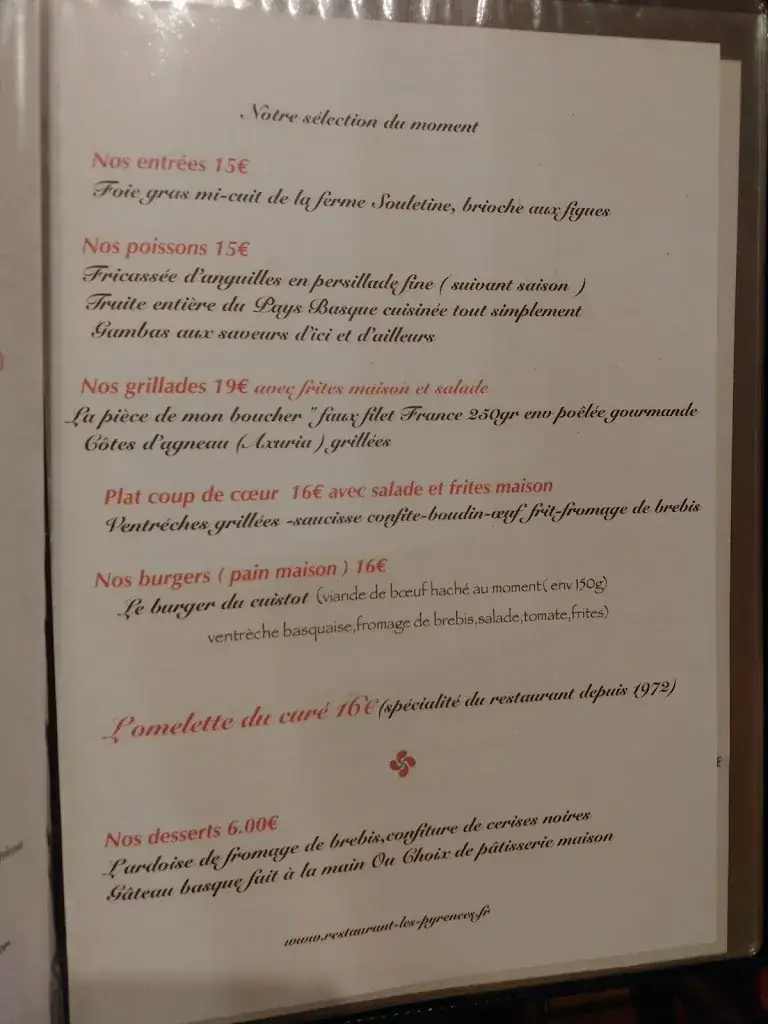 Notre sélection du moment
Nos entrées 15€
Foie gras mi-cuit de la ferme Souletine, brioche aux figues
Nos poissons 15€
Fricassée d'anguilles en persillade fine ( suivant saison )
Truite entière du Pays Basque cuisinée tout simplement
Gambas aux saveurs d'ici et d'ailleurs
Nos grillades 19€ avec frites maison et salade
La pièce de mon boucher "faux filet France 250gr env poêlée gourmande
Côtes d'agneau (Axuria ) grillées
Plat coup de cœur 16€ avec salade et frites maison
Ventréches grillées -saucisse confite-boudin-œuf frit-fromage de brebis
Nos burgers ( pain maison ) 16€
Le burger du cuistot (viande de bœuf haché au moment( env 150g)
ventrèche basquaise,fromage de brebis,salade,tomate,frites)
L'omelette du curé 16€(spécialité du restaurant depuis 1972)
Nos desserts 6.00€
L'ardoise de fromage de brebis,confiture de cerises noires
Gâteau basque fait à la main Ou Choix de pâtisserie maison
www.restaurant-les-pyrenees.fr